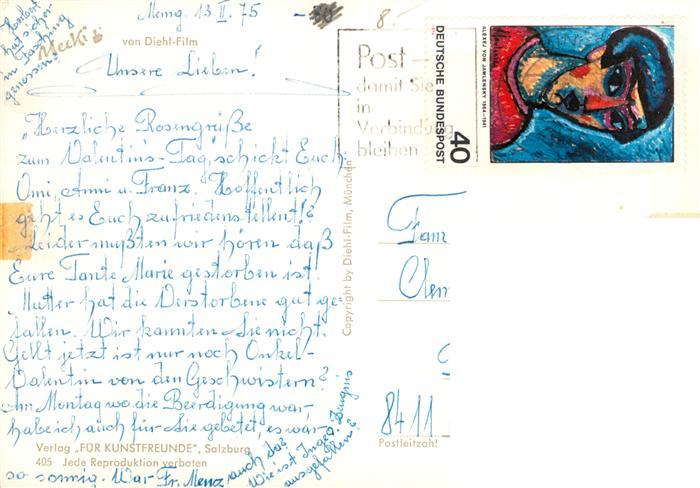 Memg. 13.II.75
von Diehl-Film
Mecki
hat schon
im Fasching
genossen!
Unsere Lieben!
"Herzliche Rosengrüße
zum Valentins-Tag, schickt Euch:
Omi, Anni u. Franz. Hoffentlich
geht es Euch zufriedenstellent!?
Leider mußten wir hören daß
Eure Tante Marie gestorben ist.
Mutter hat die Verstorbene gut ge-
fallen. Wir kannten Sie nicht.
Gellt jetzt ist nur noch Onkel-
Valentin von den Geschwistern?
Am Montag wo die Beerdigung war
habe ich auch für Sie gebetet, es war
so sonnig. War Fr. Menz auch da?
Wie ist Inges Zeugnis
ausgefallen?
Verlag „FÜR KUNSTFREUNDE", Salzburg
405 Jede Reproduktion verboten
Copyright by Diehl-Film, München
8.-
Post -
damit Sie
in
Verbindung
bleiben
DEUTSCHE BUNDESPOST
40
ALEXEJ VON JAWLENSKY 1864-1941
Fam
Clem
8411
Postleitzahl